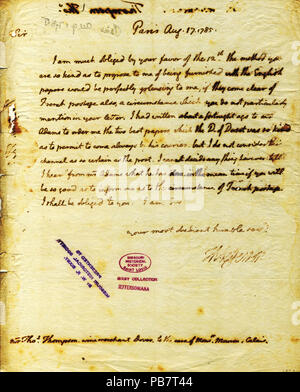 Sir
Paris Aug. 17. 1785.
I am much obliged by your favor of the 12th. the method you
are so kind as to propose to me of being furnished with the English
papers would be perfectly pleasing to me, if they come clear of
French postage, also a circumstance which you do not particularly
mention in your letter. I had written about a fortnight ago to mr
Adams to order me the two best papers which the D. of Dorset was so kind
as to permit to come always by his courier. but I do not consider this
channel as so certain as the post. I can not decide any thing however till
I hear from mr Adams what he has done. in the mean time if you will
be so good as to inform me as to the circumstance of French postage
I shall be obliged to you. I am Sir
your most obedient humble servt.
Th: Jefferson
MISSOURI
HISTORICAL
SOCIETY
SAINT LOUIS
BIXBY COLLECTION
JEFFERSONIANA
mr Thos. Thompson, wine merchant Dover. to the care of Messrs. Calais.
alamy
Image ID: PB7T44
www.alamy.com